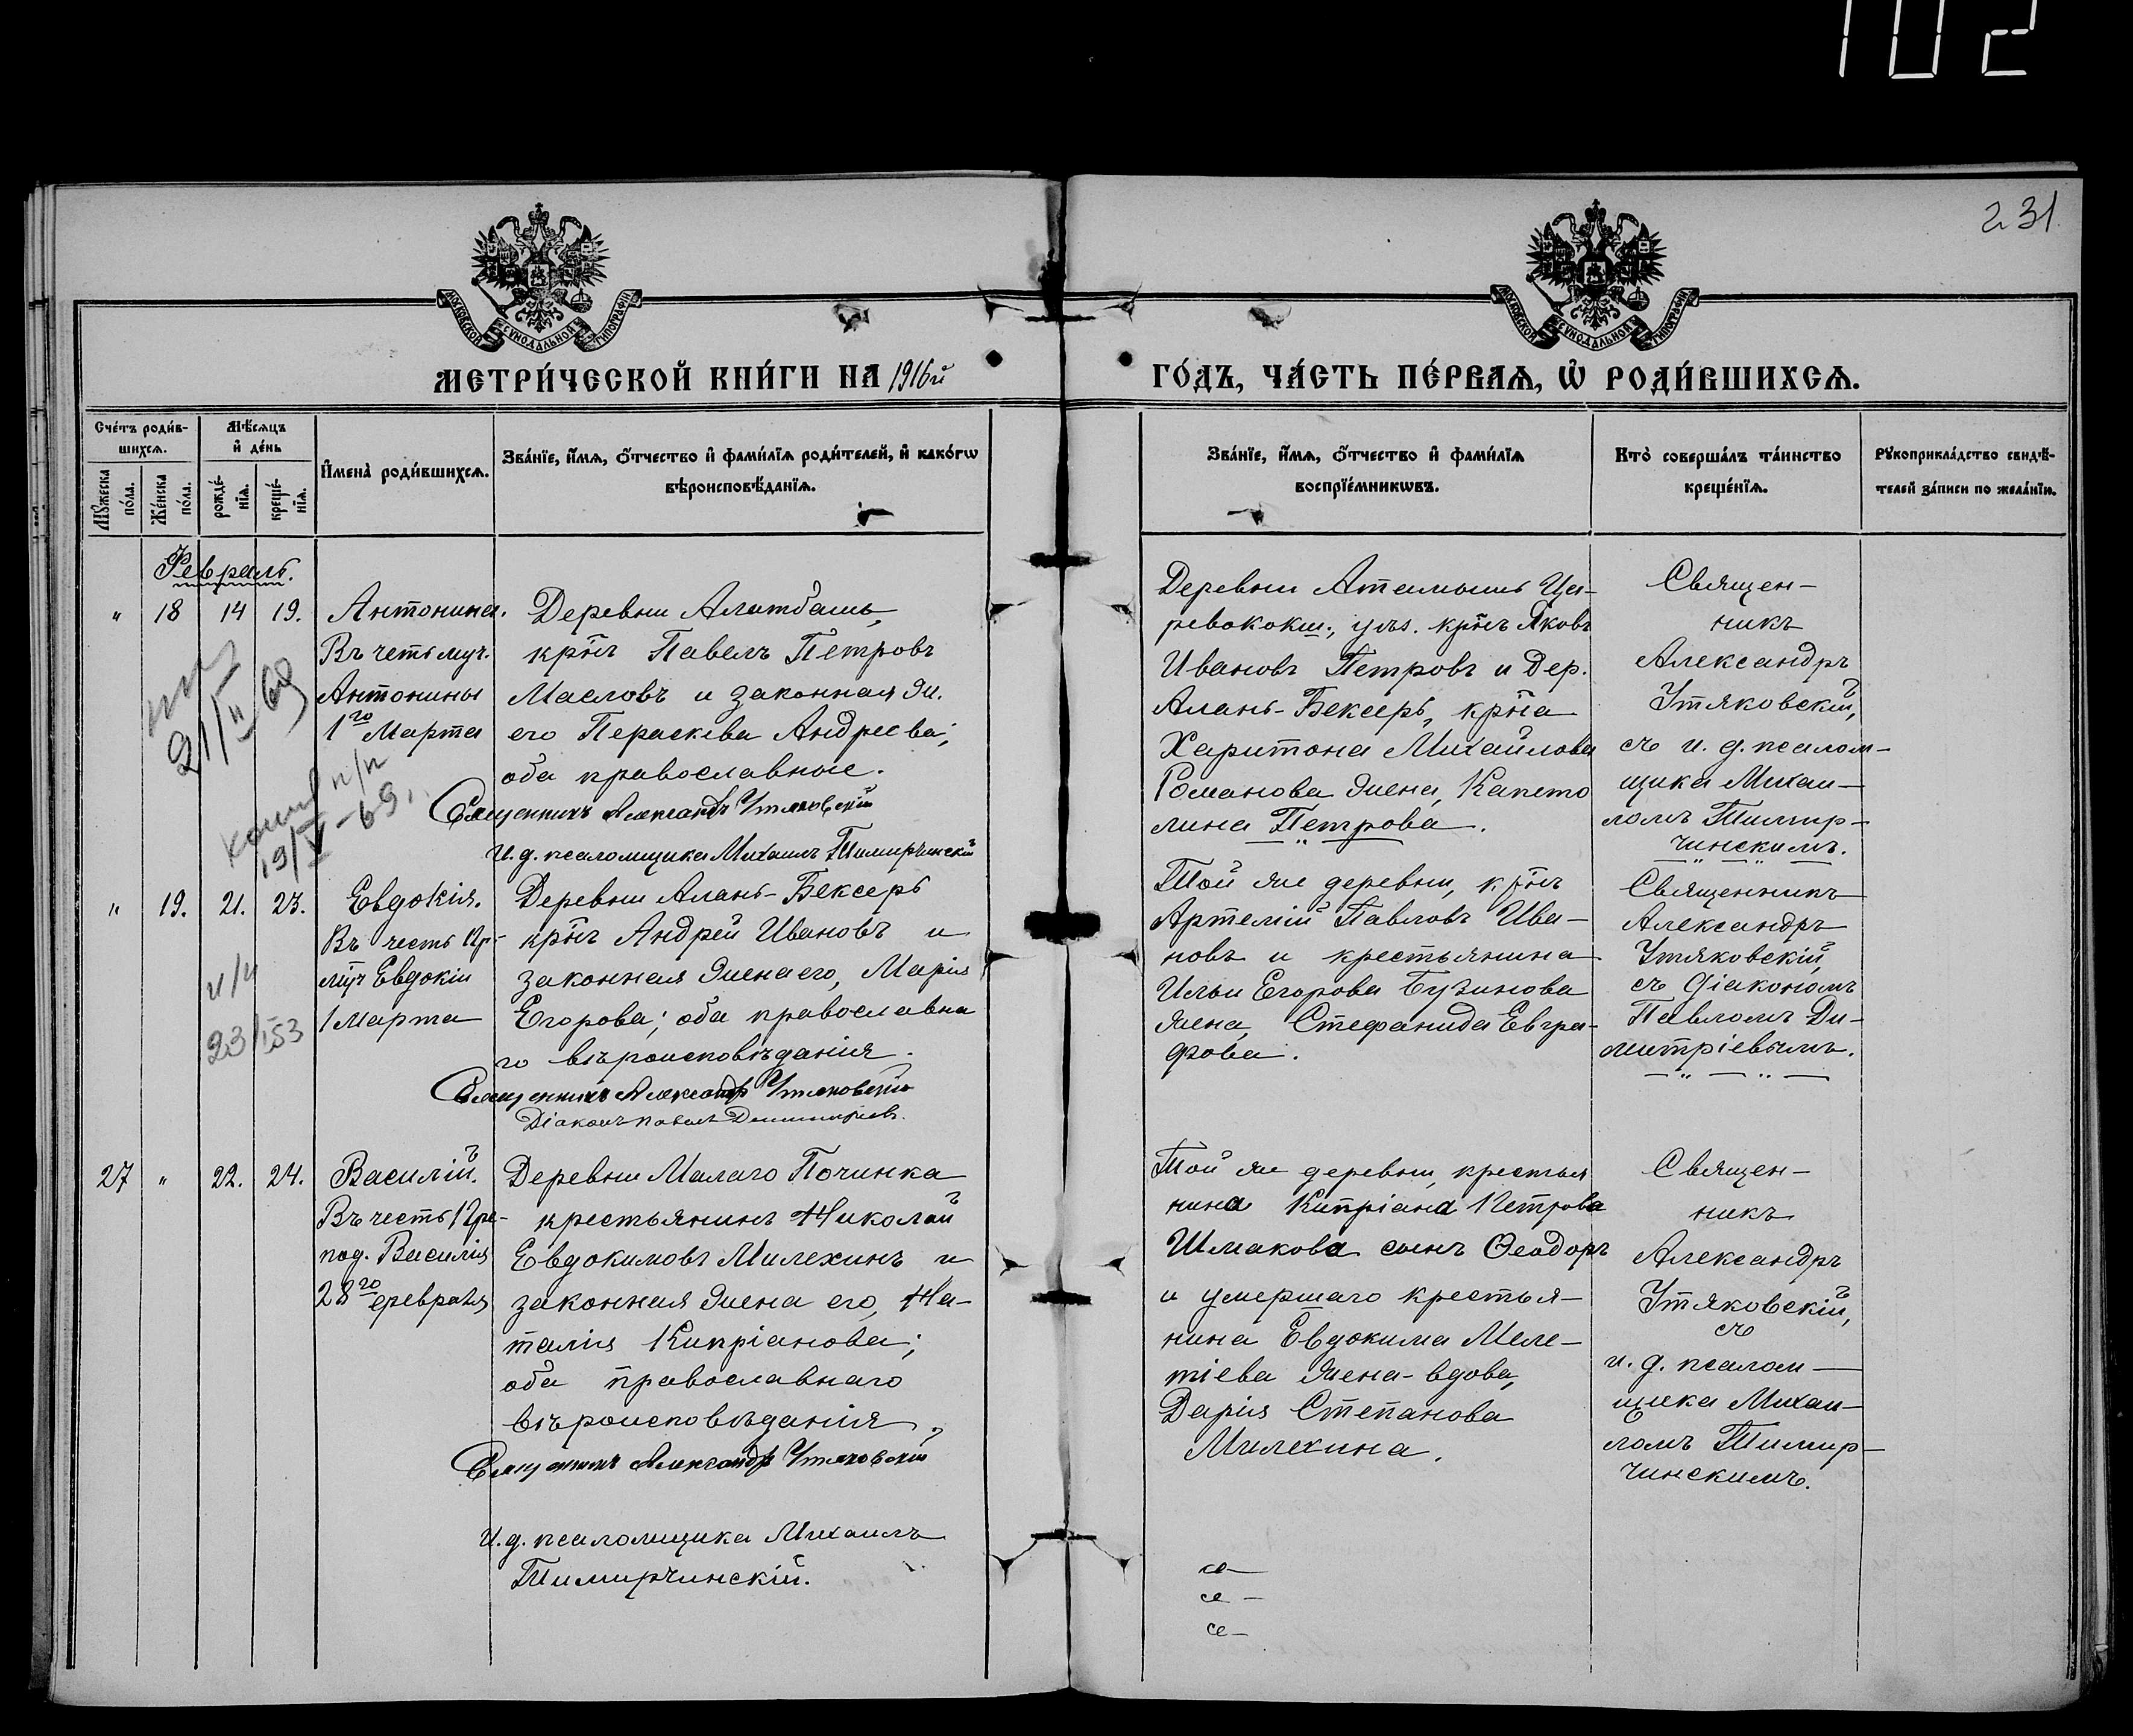 102
231
МОСКОВСКОЙ СѴНОДАЛЬНОЙ ТИПОГРАФІИ
МОСКОВСКОЙ СѴНОДАЛЬНОЙ ТИПОГРАФІИ
МЕТРИ́ЧЕСКОЙ КНИ́ГИ НА 1916й
ГО́ДЪ, ЧА́СТЬ ПЕ́РВАѦ, Ѡ҆ РОДИ́ВШИХСѦ.
Сче́тъ роди́в-
шихсѧ.
Мꙋ́жеска по́ла.
Же́нска по́ла.
Мѣ́сѧцъ
и҆ де́нь
рожде́-
нїѧ.
креще́-
нїѧ.
И҆мена̀ роди́вшихсѧ.
Зва́нїе, и҆́мѧ, ѻ҆́тчество и҆ фами́лїѧ роди́телей, и҆ како́гѡ
вѣроисповѣ́данїѧ.
Зва́нїе, и҆́мѧ, ѻ҆́тчество и҆ фами́лїѧ
воспрїе́мникѡвъ.
Кто̀ соверша́лъ та́инство
креще́нїѧ.
Рꙋкоприкла́дство свидѣ́-
телей за́писи по жела́нїю.
Февраль.
" 18 14 19. Антонина.
Въ честь муч.
Антонины
1го Марта
Деревни Алатбашъ,
крнъ Павелъ Петровъ
Масловъ и законная ж.
его Параскева Андреева;
оба православные.
Священникъ Александръ Утяковскій
И. д. псаломщика Михаилъ Тимирчинскій
21/II 69
копия п/п
19/V-69 г.
Царевококш., уѣз. крнъ Яковъ
Ивановъ Петровъ и Дер.
Алань-Бексеръ, крна
Харитона Михайлова
Романова жена, Капето
лина Петрова.
Священ-
никъ
Александръ
Утяковскій,
съ и. д. псалом-
щика Михаи-
ломъ Тимир-
чинскимъ.
" 19. 21. 23. Евдокія.
Въ честь Пр-
муч Евдокіи
1 Марта
Деревни Алань-Бексеръ
крнъ Андрей Ивановъ и
законная жена его, Марія
Егорова; оба православна
го вѣроисповѣданія.
Священникъ Александръ Утяковскій
Діаконъ Павелъ Димитріевъ.
23/I 53
Той же деревни, крнъ
Артемій Павловъ Ива-
новъ и крестьянина
Ильи Егорова Бузинова
жена, Стефанида Евгра-
фова.
Священникъ
Александръ
Утяковскій,
съ Діакономъ
Павломъ Ди-
митріевымъ.
27 " 22. 24. Василій.
Въ честь Пре-
под. Василія
28го февраля
Деревни Малаго Починка
крестьянинъ Николай
Евдокимовъ Милехинъ и
законная жена его, На-
талія Кипріанова;
оба православнаго
вѣроисповѣданія.
Священникъ Александръ Утяковскій
И. д. псаломщика Михаилъ
Тимирчинскій.
Той же деревни, крестья
нина Кипріана Петрова
Шмакова сынъ Ѳеодоръ
и умершаго крестья-
нина Евдокима Меле-
тіева жена-вдова,
Дарія Степанова
Милехина.
Священ-
никъ
Александръ
Утяковскій,
съ
и. д. псалом-
щика Михаи-
ломъ Тимир-
чинскимъ.